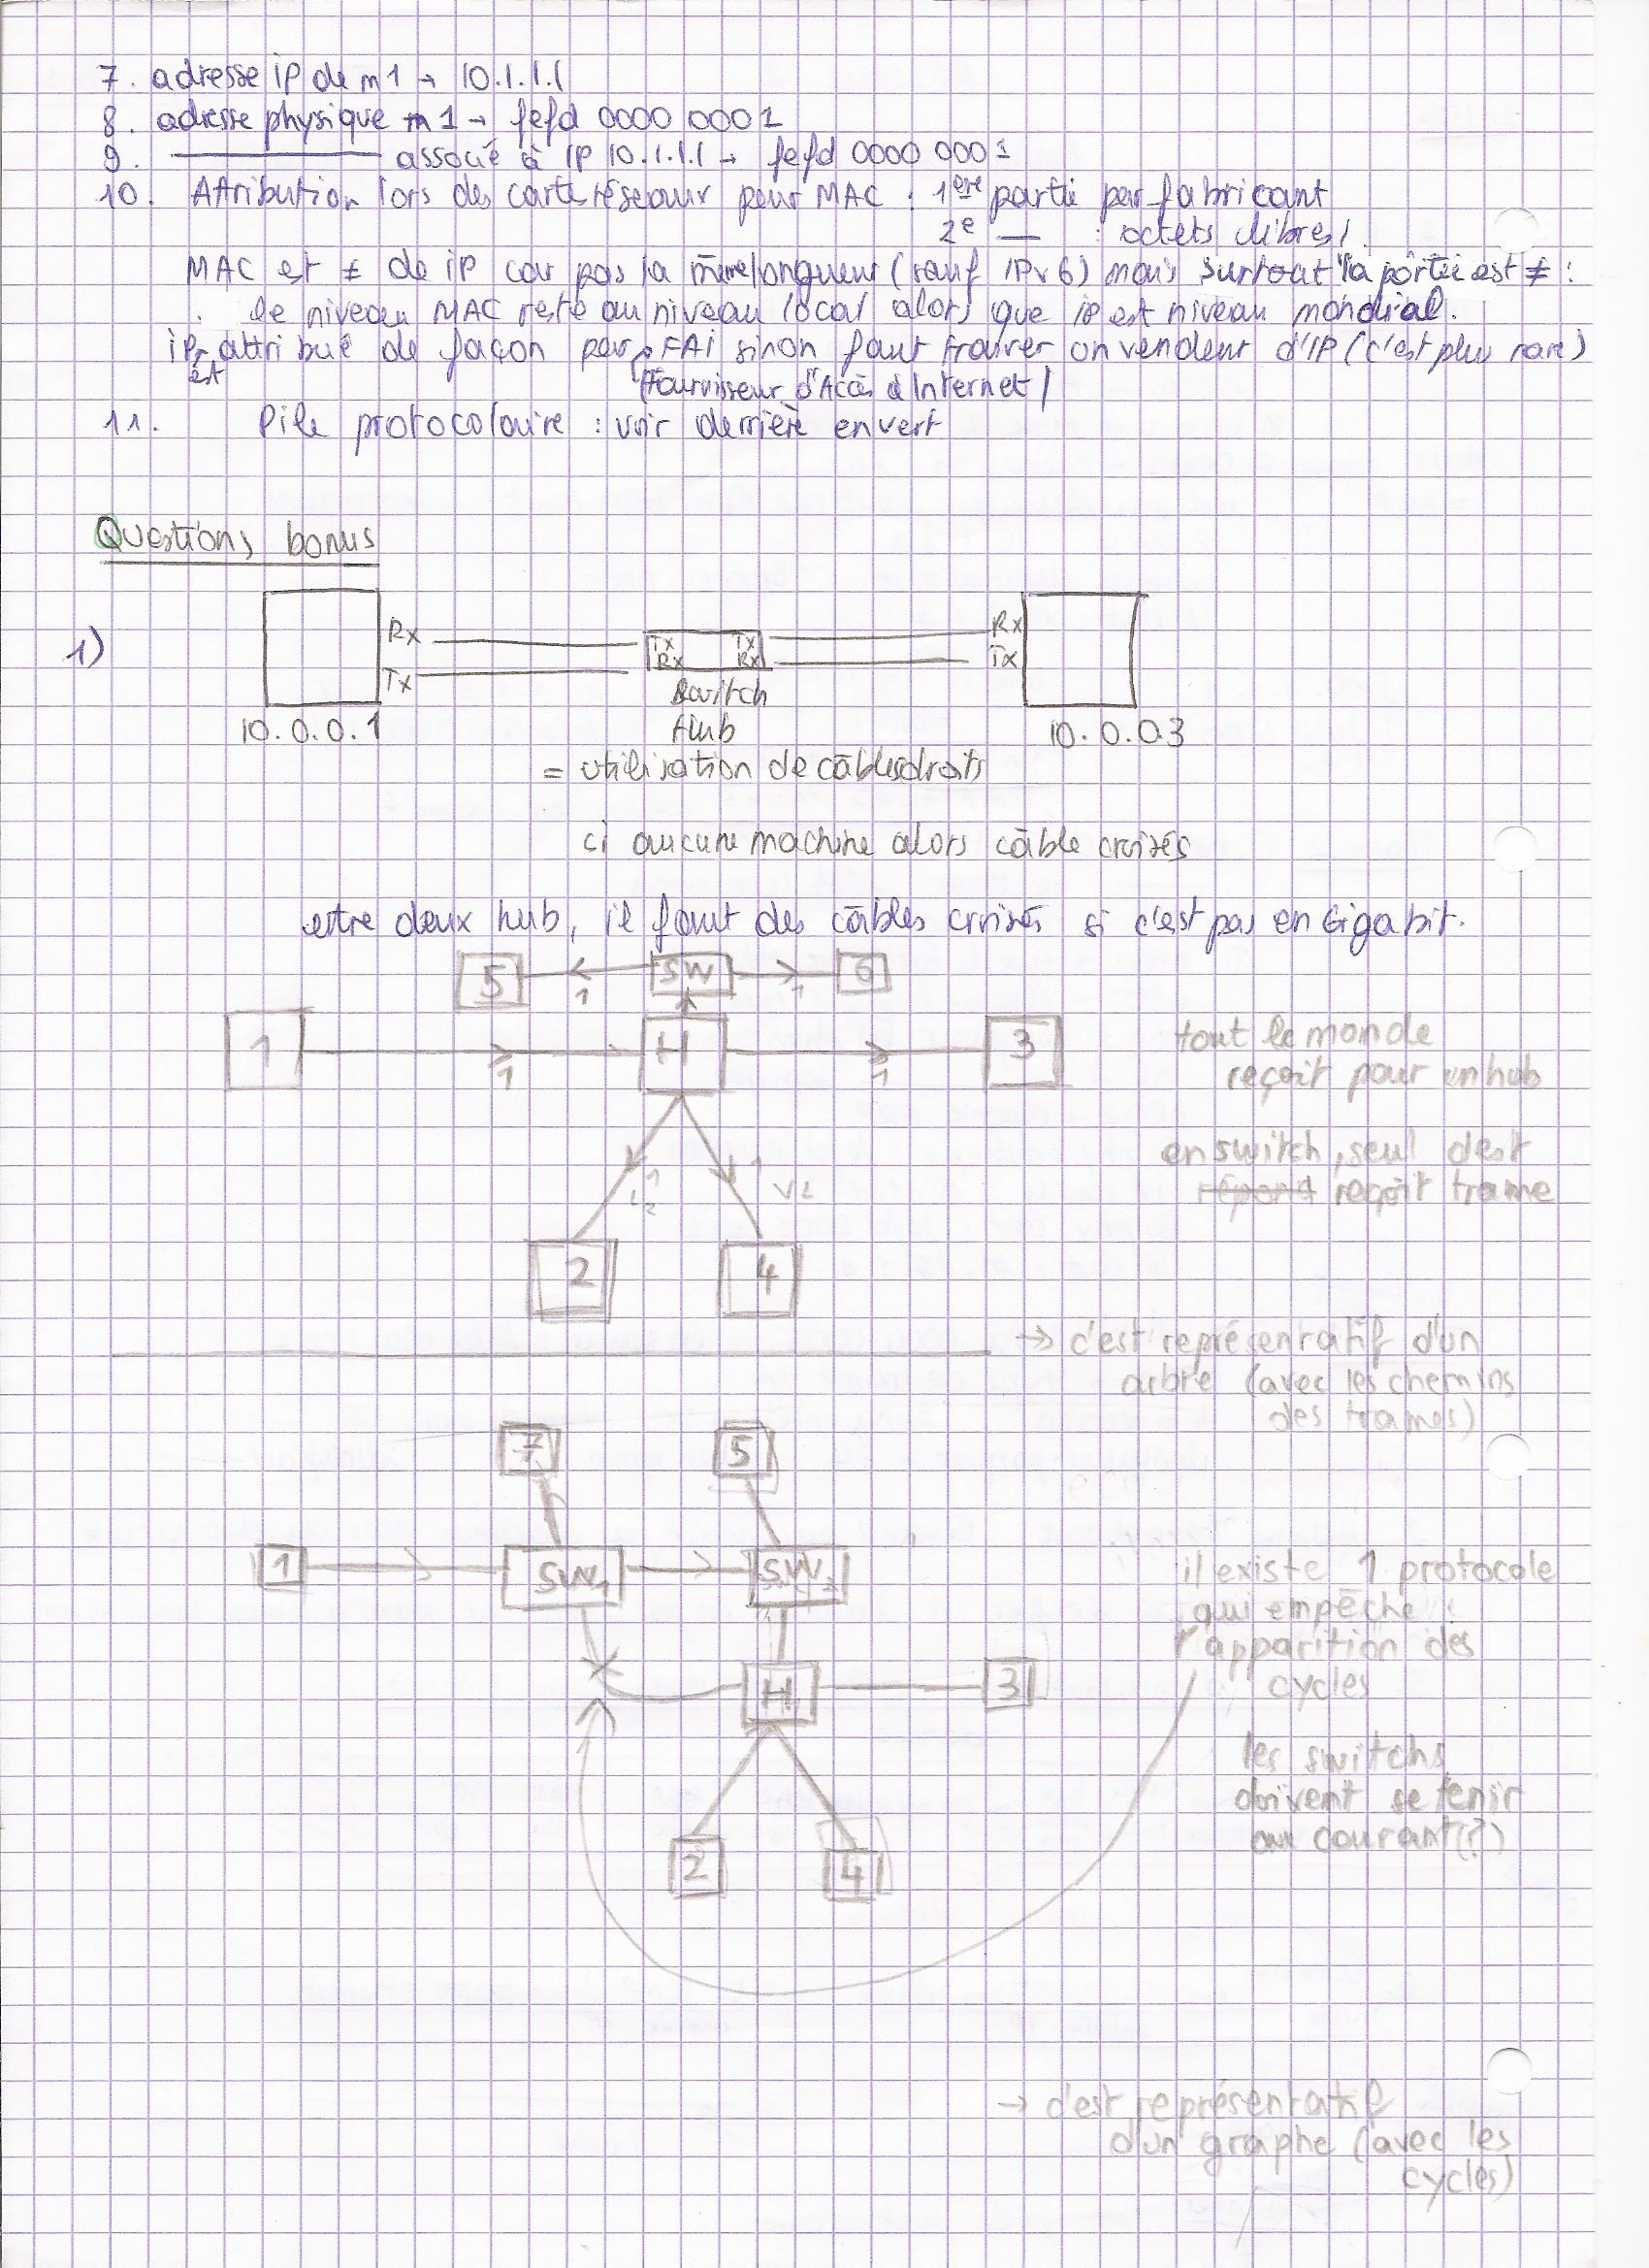 7. adresse IP de m1 → 10.1.1.1
8. adresse physique m1 → fefd 0000 0001
9. ——— associé à IP 10.1.1.1 → fefd 0000 0001
10. Attribution lors des carte réseaux pour MAC : 1ère partie par fabricant
2e — : octets libres
MAC est ≠ de IP car pas la même longueur (sauf IPv6) mais surtout la portée est ≠ :
le niveau MAC reste au niveau local alors que IP est niveau mondial.
IP est attribué de façon par FAI sinon faut trouver un vendeur d'IP (c'est plus rare)
(Fournisseur d'Accès à Internet)
11. Pile protocolaire : voir derrière en vert
Questions bonus
1)
Rx Tx Tx Rx
Tx Rx Rx Tx
Switch
10.0.0.1 Hub 10.0.0.3
= utilisation de câbles droits
ci aucune machine alors câble croisés
entre deux hub, il faut des câbles croisés si c'est pas en Gigabit.
5 1 SW 1 6
1 1 H 1 3
tout le monde
reçoit pour un hub
en switch, seul dest
répond reçoit trame
1 1
2 4
→ c'est représentatif d'un
arbre (avec les chemins
des trames)
7 5
1 SW1 SW2
il existe 1 protocole
qui empêche
l'apparition des
cycles
H 3
les switchs
doivent se tenir
au courant(?)
2 4
→ c'est représentatif
d'un graphe (avec les
cycles)